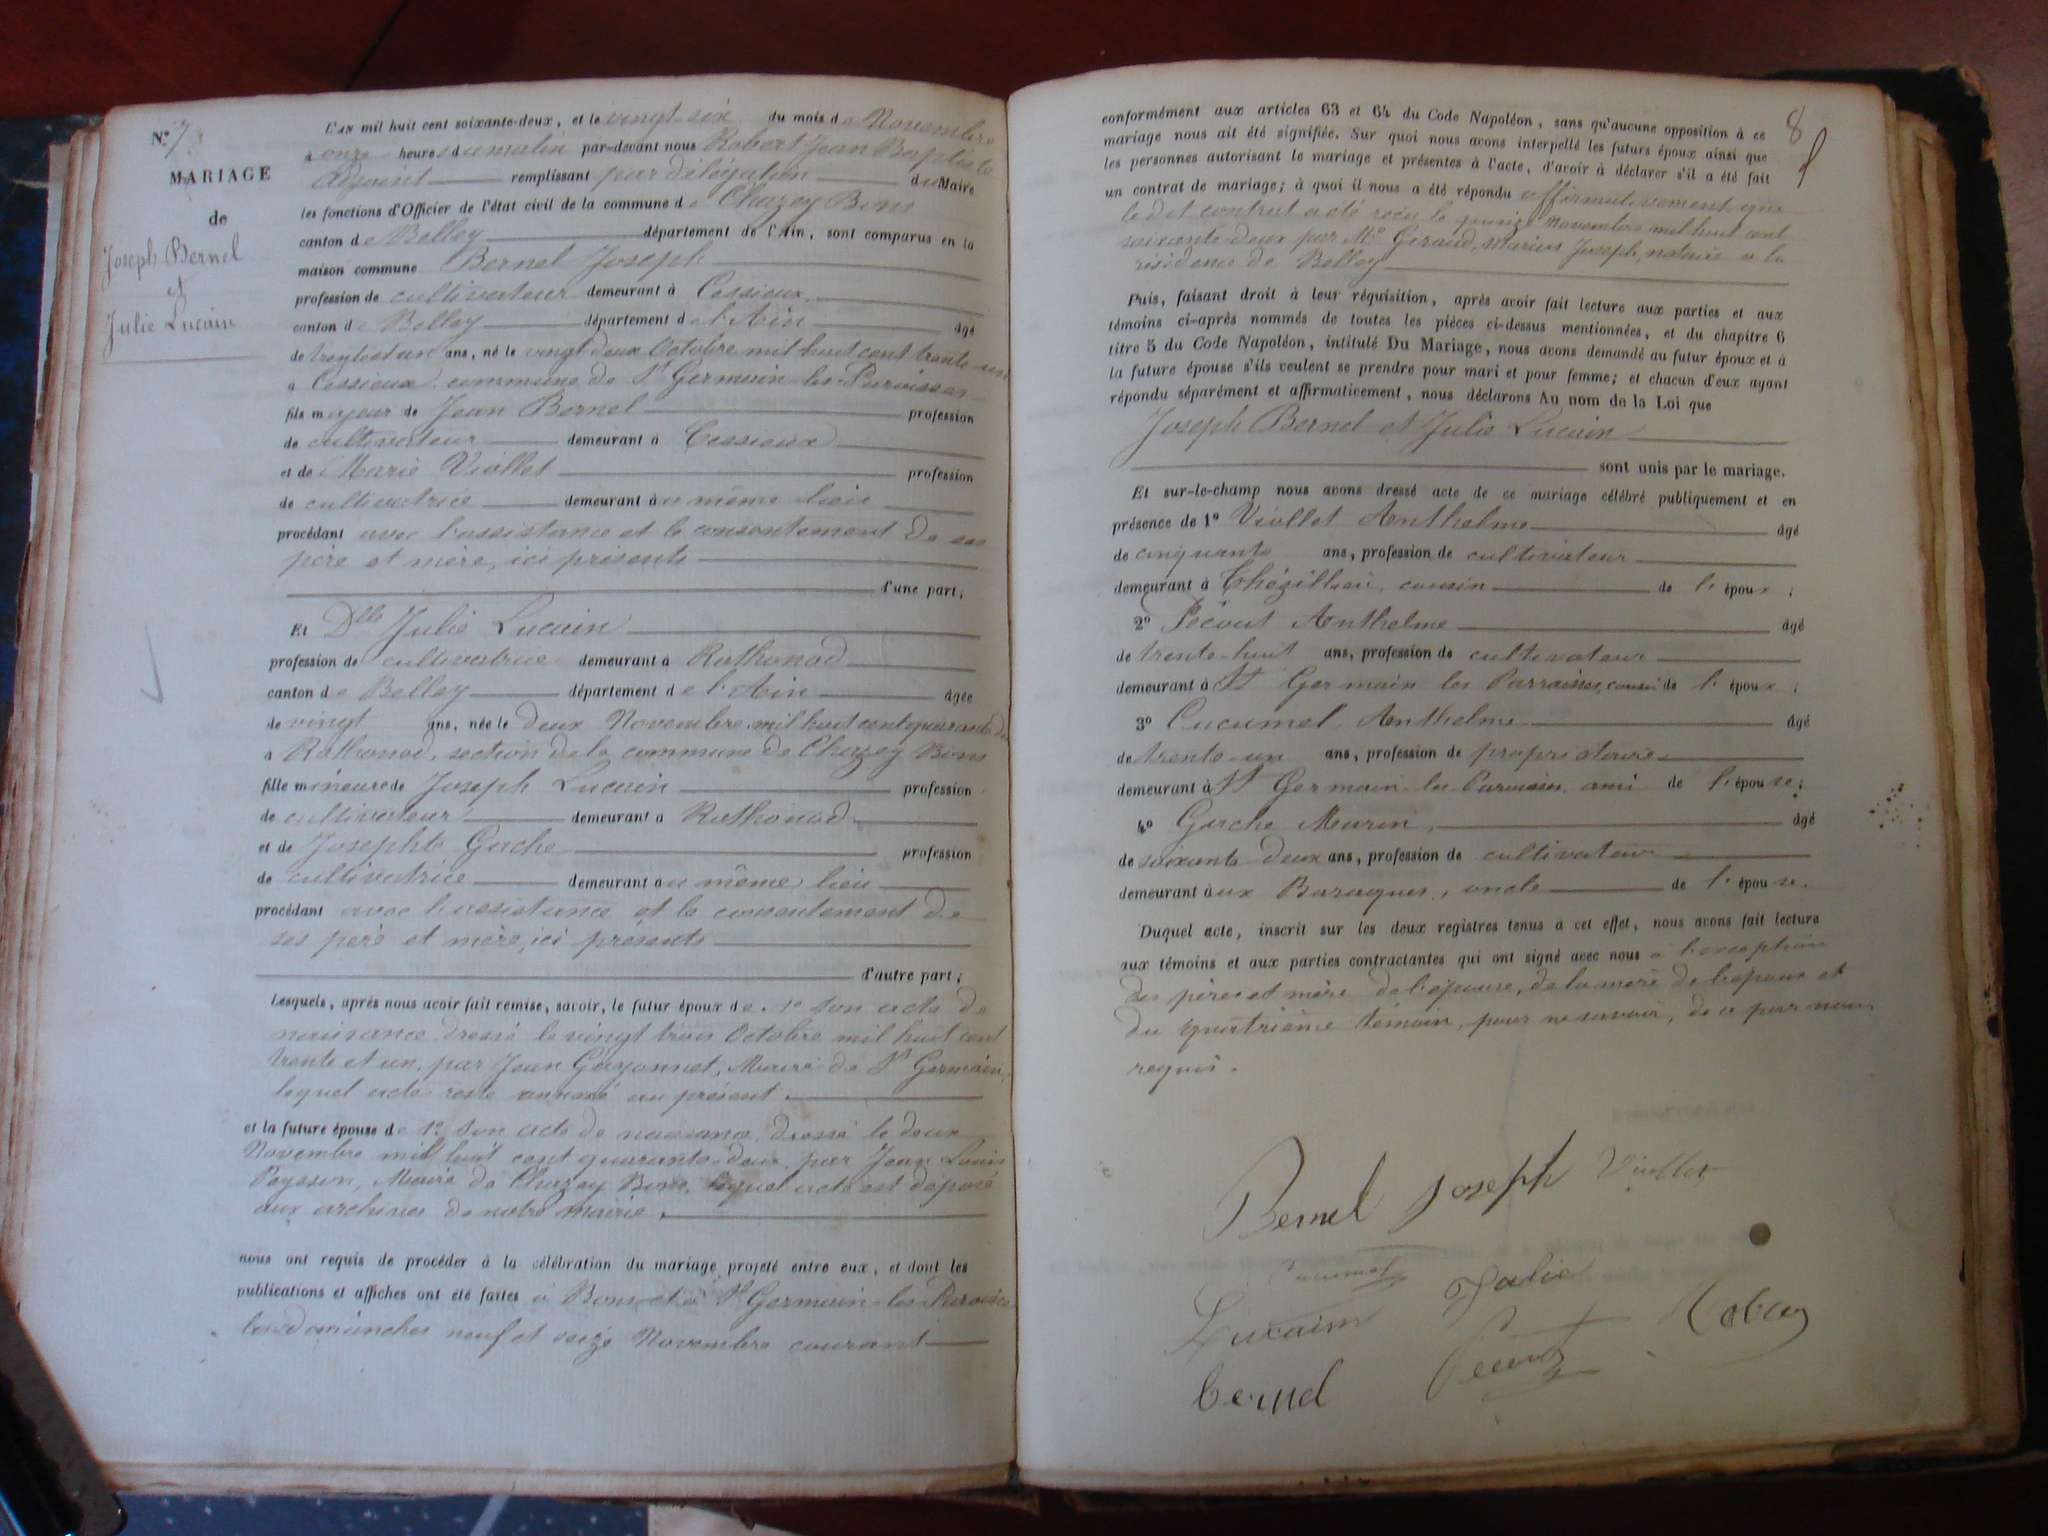 N.º 7.
MARIAGE
de
Joseph Bernel
et
Julie Lucain
L'AN mil huit cent soixante-deux, et le vingt-six du mois de Novembre
à onze heures du matin par-devant nous Robert Jean Baptiste
Adjoint remplissant par délégation du Maire
les fonctions d'Officier de l'état civil de la commune de Chazey Bons
canton de Belley département de l'Ain, sont comparus en la
maison commune Bernel Joseph
profession de cultivateur demeurant à Cessieux
canton de Belley département de l'Ain âgé
de trente et un ans, né le vingt-deux Octobre mil huit cent trente un
à Cessieux commune de St Germain les Paroisses
fils majeur de Jean Bernel profession
de cultivateur demeurant à Cessieux
et de Marie Viollet profession
de cultivatrice demeurant au même lieu
procédant avec l'assistance et le consentement de ses
père et mère, ici présents
d'une part;
Et Dlle Julie Lucain
profession de cultivatrice demeurant à Rothonod
canton de Belley département de l'Ain âgée
de vingt ans, née le deux Novembre mil huit cent quarante deux
à Rothonod, section de la commune de Chazey Bons
fille mineure de Joseph Lucain profession
de cultivateur demeurant à Rothonod
et de Josephte Gache profession
de cultivatrice demeurant au même lieu
procédant avec l'assistance et le consentement de
ses père et mère, ici présents
d'autre part;
Lesquels, après nous avoir fait remise, savoir, le futur époux de 1º son acte de
naissance dressé le vingt trois Octobre mil huit cent
trente et un, par Jean Guyonnet, Maire de St Germain,
lequel acte reste annexé au présent.
et la future épouse de 1º son acte de naissance, dressé le deux
Novembre mil huit cent quarante-deux, par Jean Louis
Peysson, Maire de Chazey Bons, lequel acte est déposé
aux archives de notre mairie.
nous ont requis de procéder à la célébration du mariage projeté entre eux, et dont les
publications et affiches ont été faites à Bons et à St Germain les Paroisses
les dimanches neuf et seize Novembre courant
8
conformément aux articles 63 et 64 du Code Napoléon, sans qu'aucune opposition à ce
mariage nous ait été signifiée. Sur quoi nous avons interpellé les futurs époux ainsi que
les personnes autorisant le mariage et présentes à l'acte, d'avoir à déclarer s'il a été fait
un contrat de mariage; à quoi il nous a été répondu affirmativement que
le dit contrat a été reçu le quinze Novembre mil huit cent
soixante-deux par Me Geraud, Marius Joseph, notaire à la
résidence de Belley
Puis, faisant droit à leur réquisition, après avoir fait lecture aux parties et aux
témoins ci-après nommés de toutes les pièces ci-dessus mentionnées, et du chapitre 6
titre 5 du Code Napoléon, intitulé Du Mariage, nous avons demandé au futur époux et à
la future épouse s'ils veulent se prendre pour mari et pour femme; et chacun d'eux ayant
répondu séparément et affirmativement, nous déclarons Au nom de la Loi que
Joseph Bernel et Julie Lucain
sont unis par le mariage.
Et sur-le-champ nous avons dressé acte de ce mariage célébré publiquement et en
présence de 1º Viollet Anthelme âgé
de cinquante ans, profession de cultivateur
demeurant à Thézillieu, cousin de l'époux;
2º Pécout Anthelme âgé
de trente-huit ans, profession de cultivateur
demeurant à St Germain les Parroisses, cousin de l'époux;
3º Cucumel Anthelme âgé
de trente-un ans, profession de propriétaire
demeurant à St Germain les Paroisses, ami de l'épouse;
4º Gache Meurin, âgé
de soixante deux ans, profession de cultivateur
demeurant aux Baraques, oncle de l'épouse.
Duquel acte, inscrit sur les deux registres tenus à cet effet, nous avons fait lecture
aux témoins et aux parties contractantes qui ont signé avec nous à l'exception
des père et mère de l'épouse, de la mère de l'époux et
du quatrième témoin, pour ne savoir, de ce par nous
requis.
Bernel Joseph Viollet
Cucumel
Lucain Julie
Pecout Robert
bernel